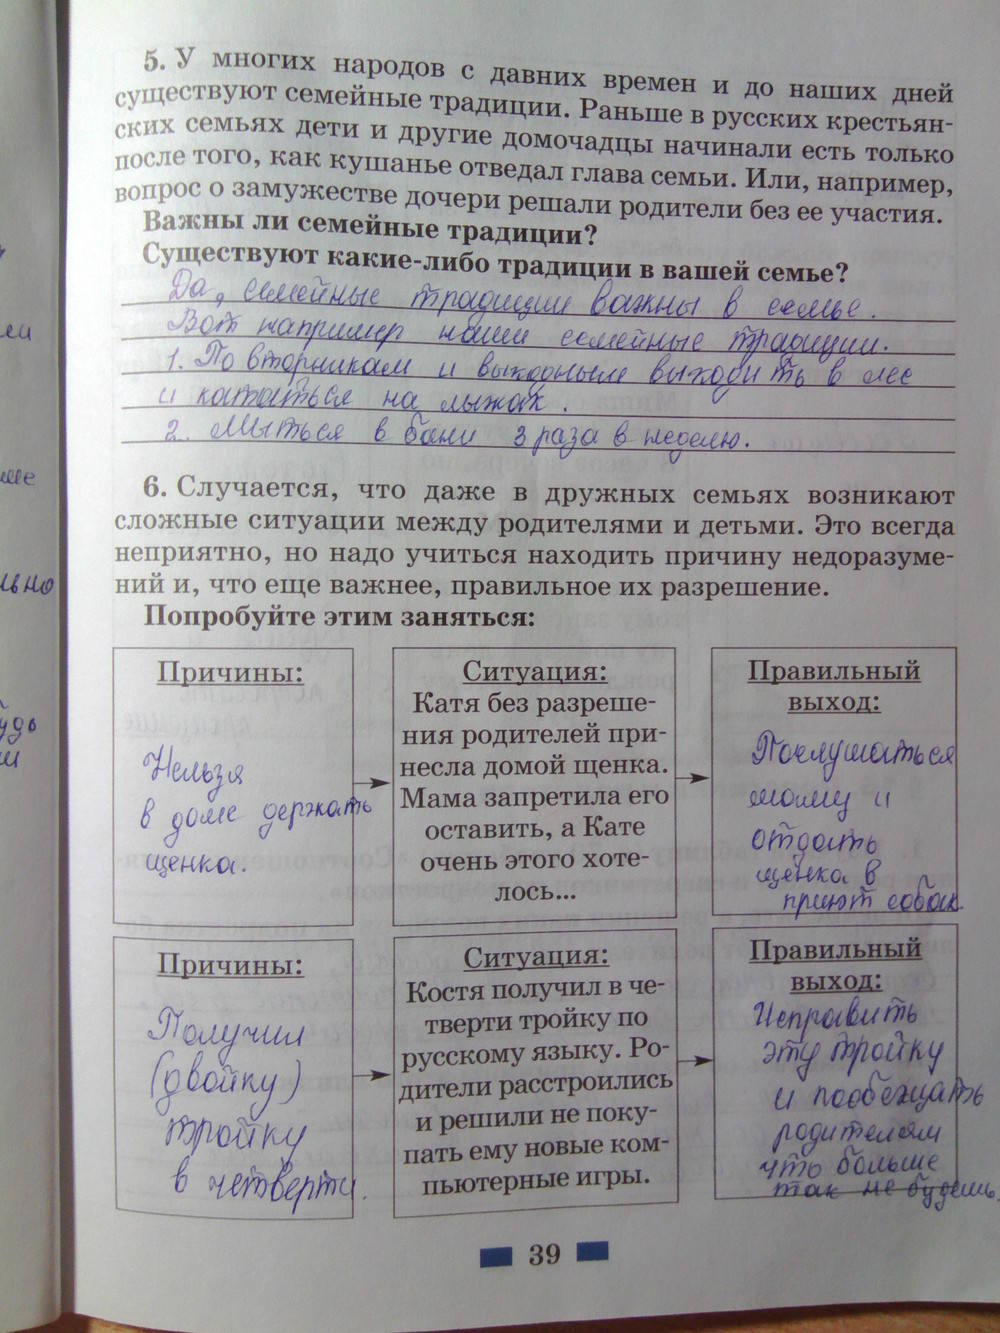 5. У многих народов с давних времен и до наших дней
существуют семейные традиции. Раньше в русских крестьян-
ских семьях дети и другие домочадцы начинали есть только
после того, как кушанье отведал глава семьи. Или, например,
вопрос о замужестве дочери решали родители без ее участия.
Важны ли семейные традиции?
Существуют какие-либо традиции в вашей семье?
Да, семейные традиции важны в семье.
Вот например наши семейные традиции.
1. По вторникам и выходным выходить в лес
и кататься на лыжах.
2. Мыться в бани 3 раза в неделю.
6. Случается, что даже в дружных семьях возникают
сложные ситуации между родителями и детьми. Это всегда
неприятно, но надо учиться находить причину недоразуме-
ний и, что еще важнее, правильное их разрешение.
Попробуйте этим заняться:
Причины:
Нельзя
в доме держать
щенка.
Ситуация:
Катя без разреше-
ния родителей при-
несла домой щенка.
Мама запретила его
оставить, а Кате
очень этого хоте-
лось...
Правильный
выход:
Послушаться
маму и
отдать
щенка в
приют собак.
Причины:
Получил
(двойку)
тройку
в четверти.
Ситуация:
Костя получил в че-
тверти тройку по
русскому языку. Ро-
дители расстроились
и решили не поку-
пать ему новые ком-
пьютерные игры.
Правильный
выход:
Исправить
эту тройку
и пообещать
родителям
что больше
так не будешь.
39